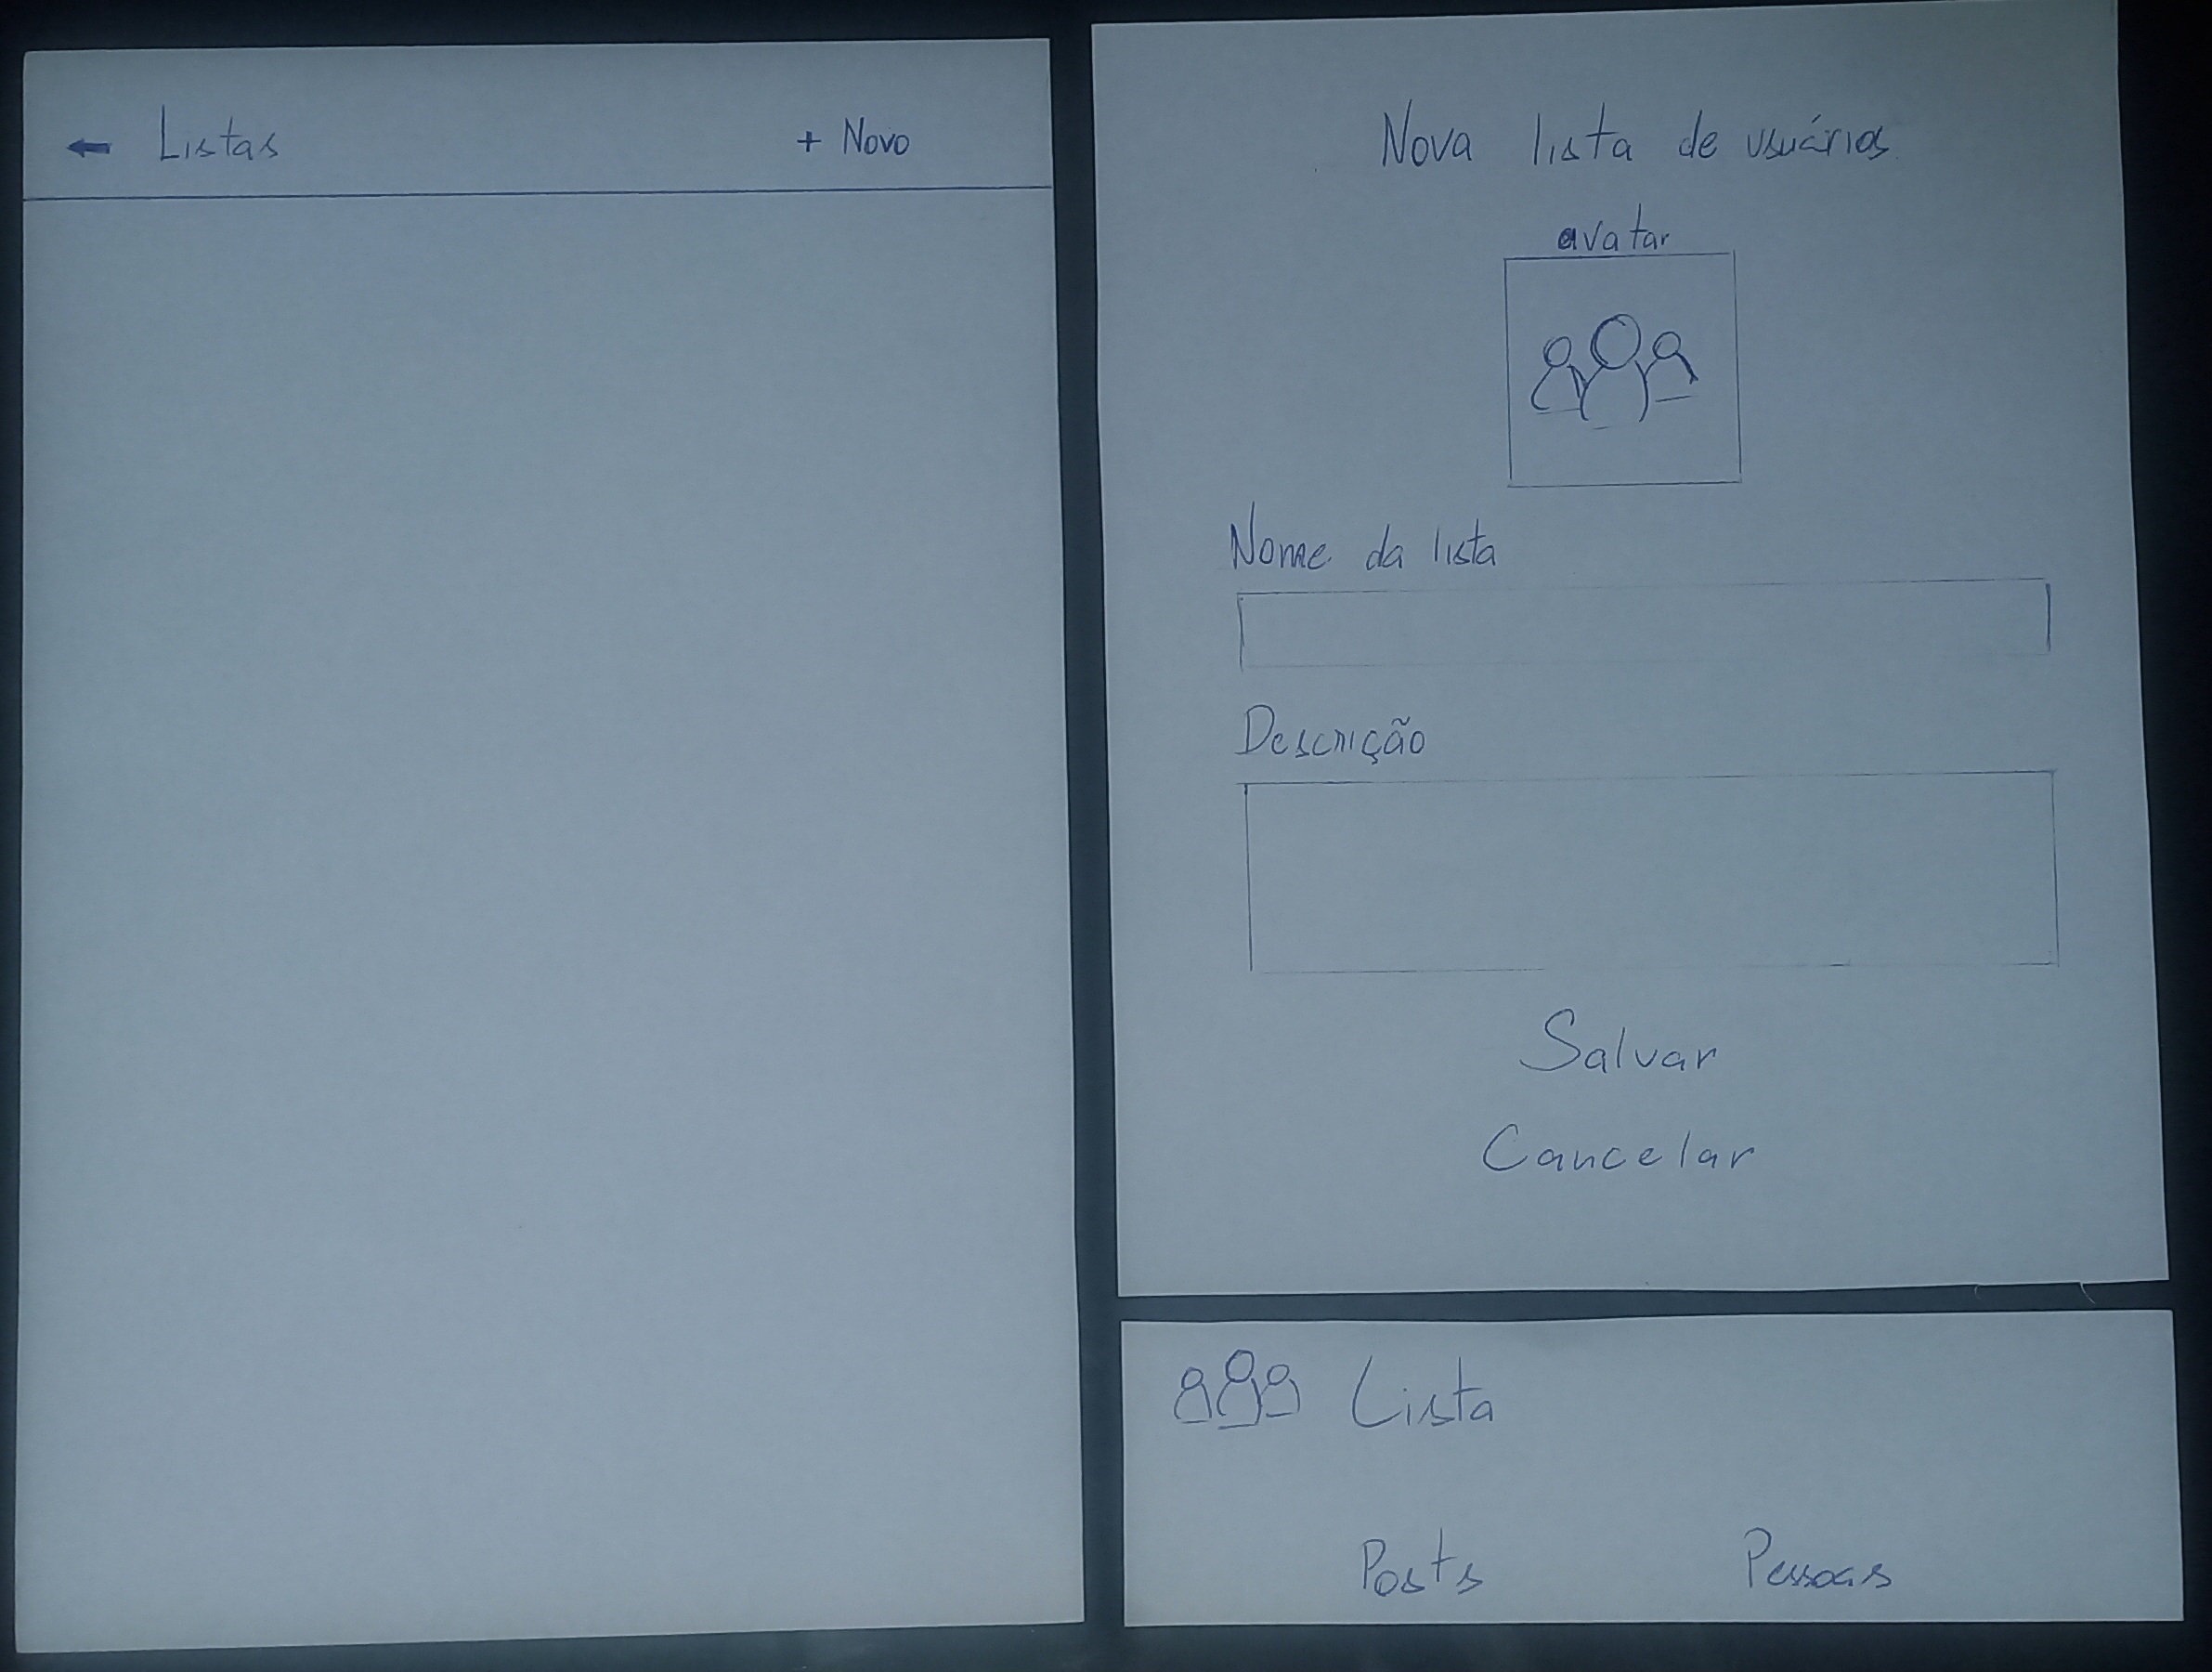 ← Listas + Novo
Nova lista de usuários
avatar
Nome da lista
Descrição
Salvar
Cancelar
Lista
Posts Pessoas